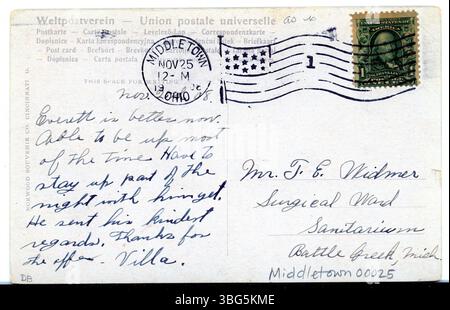 Weltpostverein — Union postale universelle
Postkarte – Carte postale – Levelező-Lap – Correspondenzkarte
Dopisnice – Karta Korespondencyjna – Dopisnica – Briefkaart
Post card – Brefkort
Dopisnica – Carte postale
THIS SPACE
MIDDLETOWN
NOV 25
12-M
OHIO
1
Nov.
Everett is better now.
Able to be up most
of the time. Have to
stay up part of the
night with him yet.
He sent his kindest
regards. Thanks for
the offer. Villa.
Mr. T. E. Widmer
Surgical Ward
Sanitarium
Battle Creek, Mich
Middletown 00025
DB
SOUVENIR CO. CINCINNATI, O.
alamy
Image ID: 3BG5KME
www.alamy.com